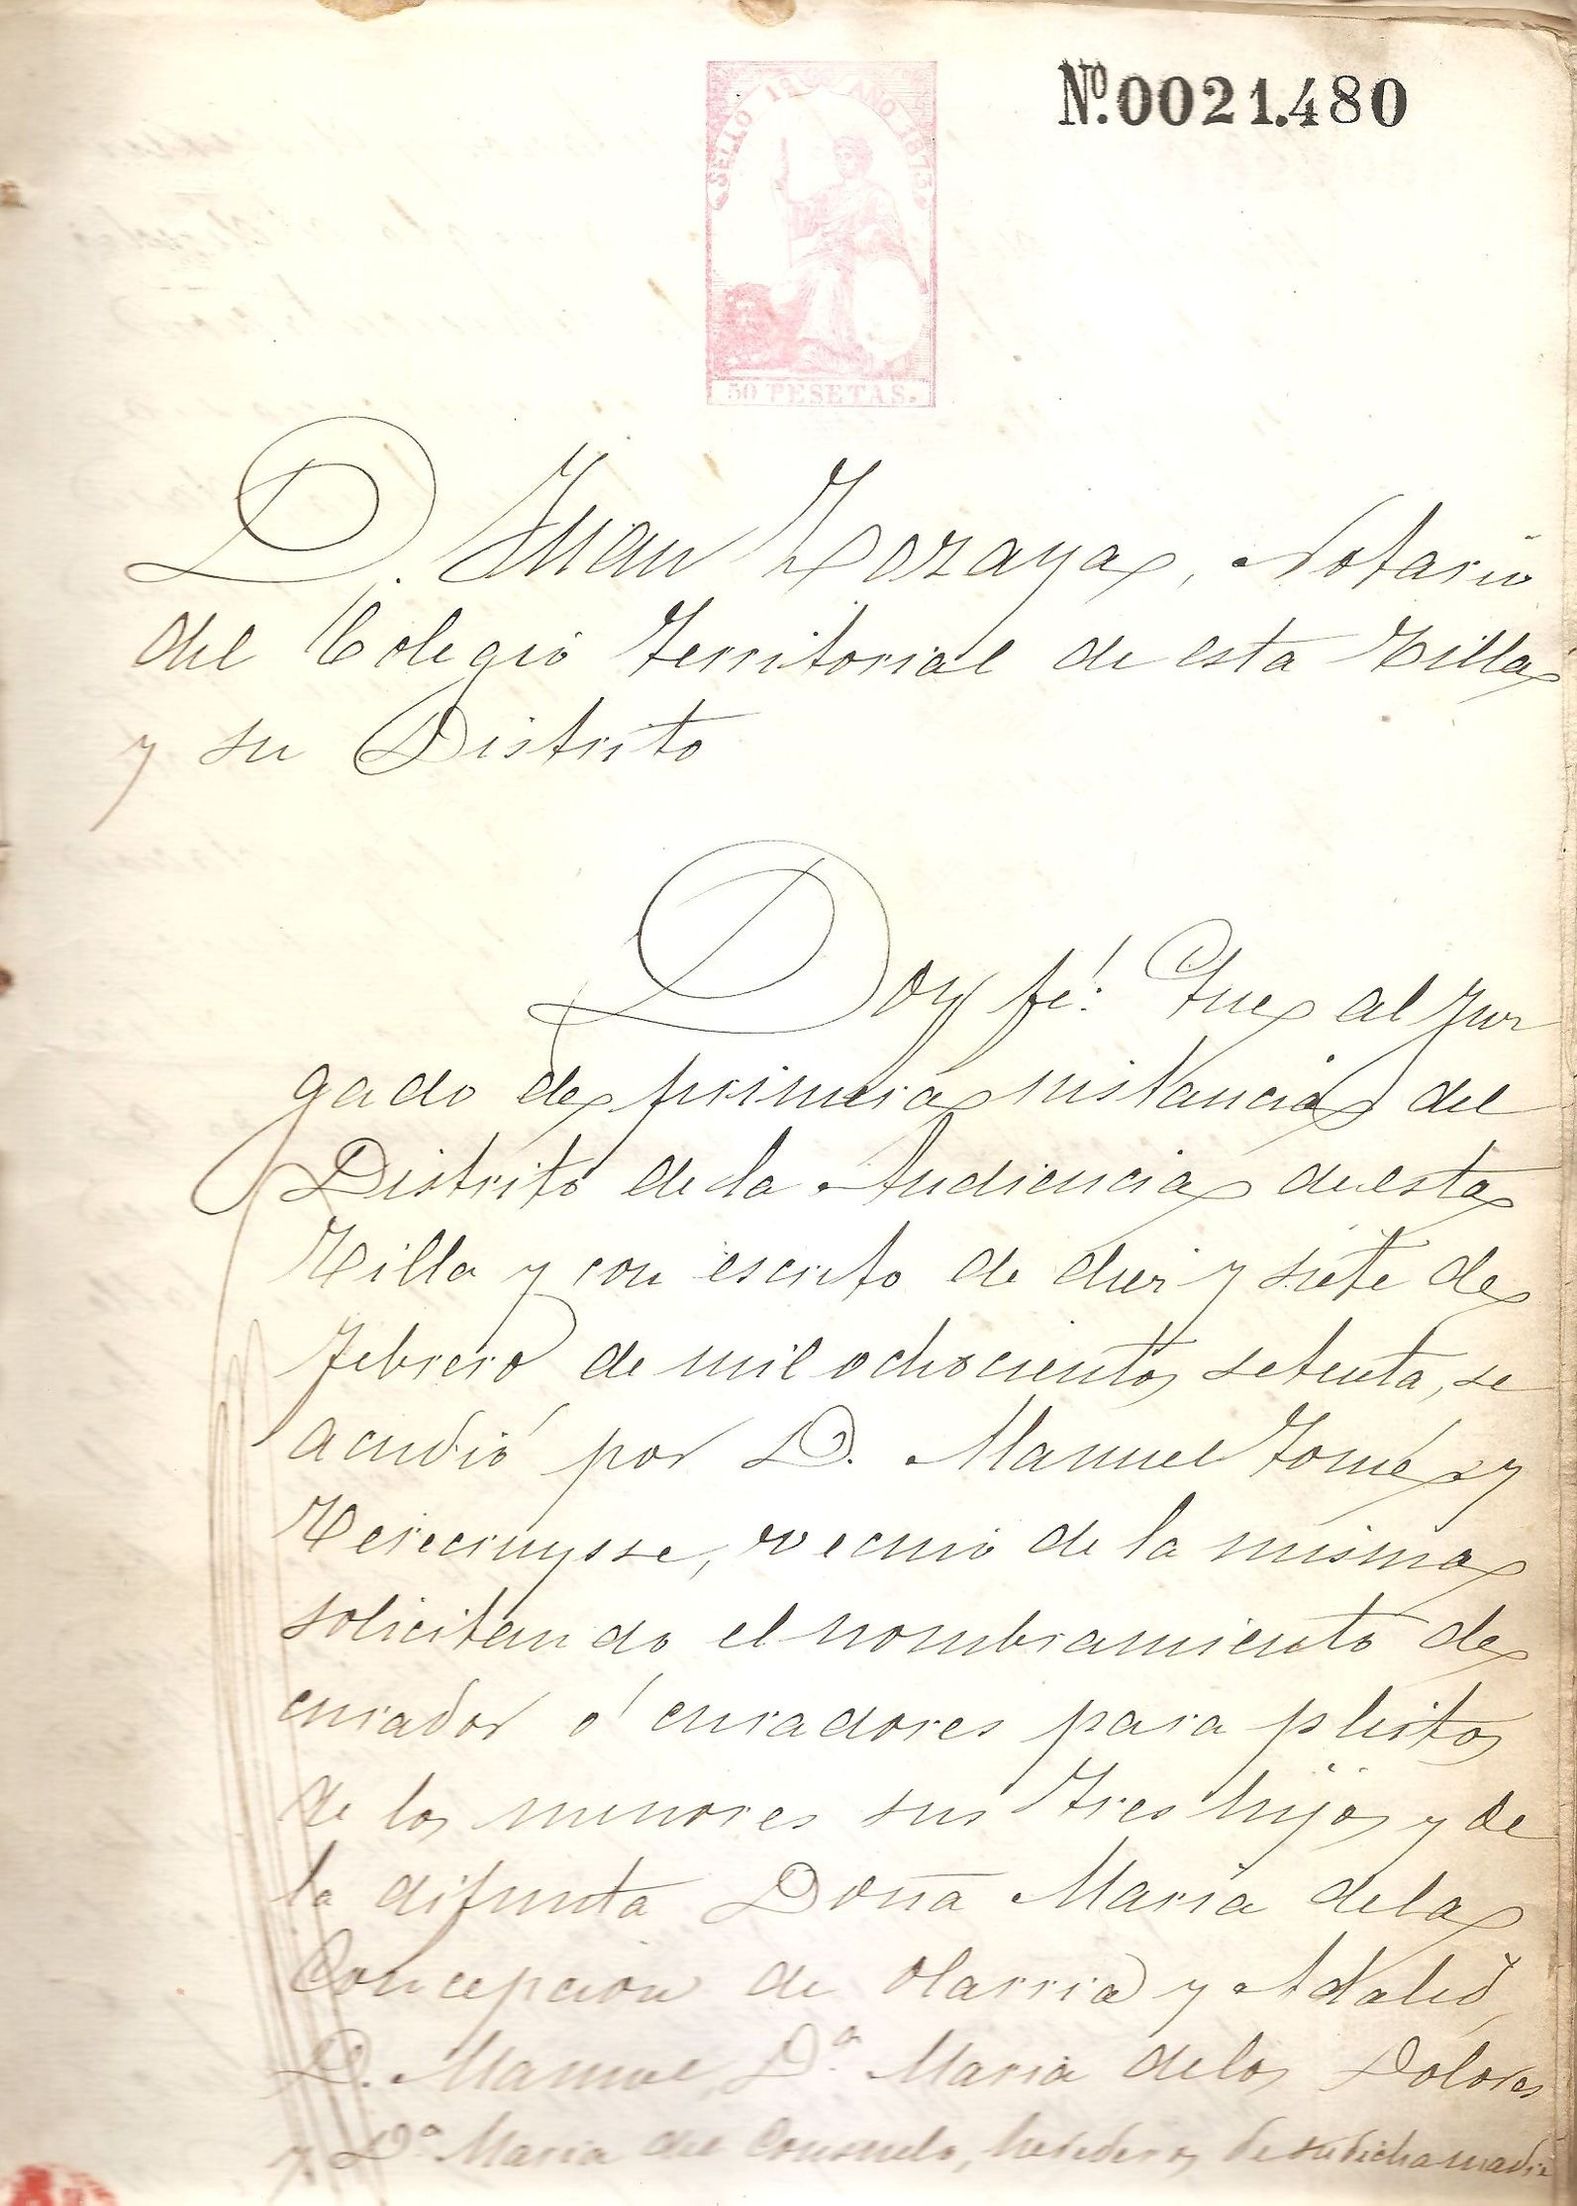 SELLO 1º AÑO 1873
Nº. 0021.480
50 PESETAS.
D. Juan Zozaya, Notario
del Colegio Territorial de esta Villa
y su Distrito
Doy fé: Que al Juz
gado de primera instancia del
Distrito de la Audiencia de esta
Villa y con escrito de diez y siete de
Febrero de mil ochocientos setenta, se
acudió por D. Manuel Tomé y
Verecruysse, vecino de la misma
solicitando el nombramiento de
curador ó curadores para pleitos
de los menores sus tres hijos y de
la difunta Doña Maria de la
Concepcion de Olarria y Adalid,
D. Manuel, D.ª Maria de los Dolores
y D.ª Maria del Consuelo, herederos de su dicha madre